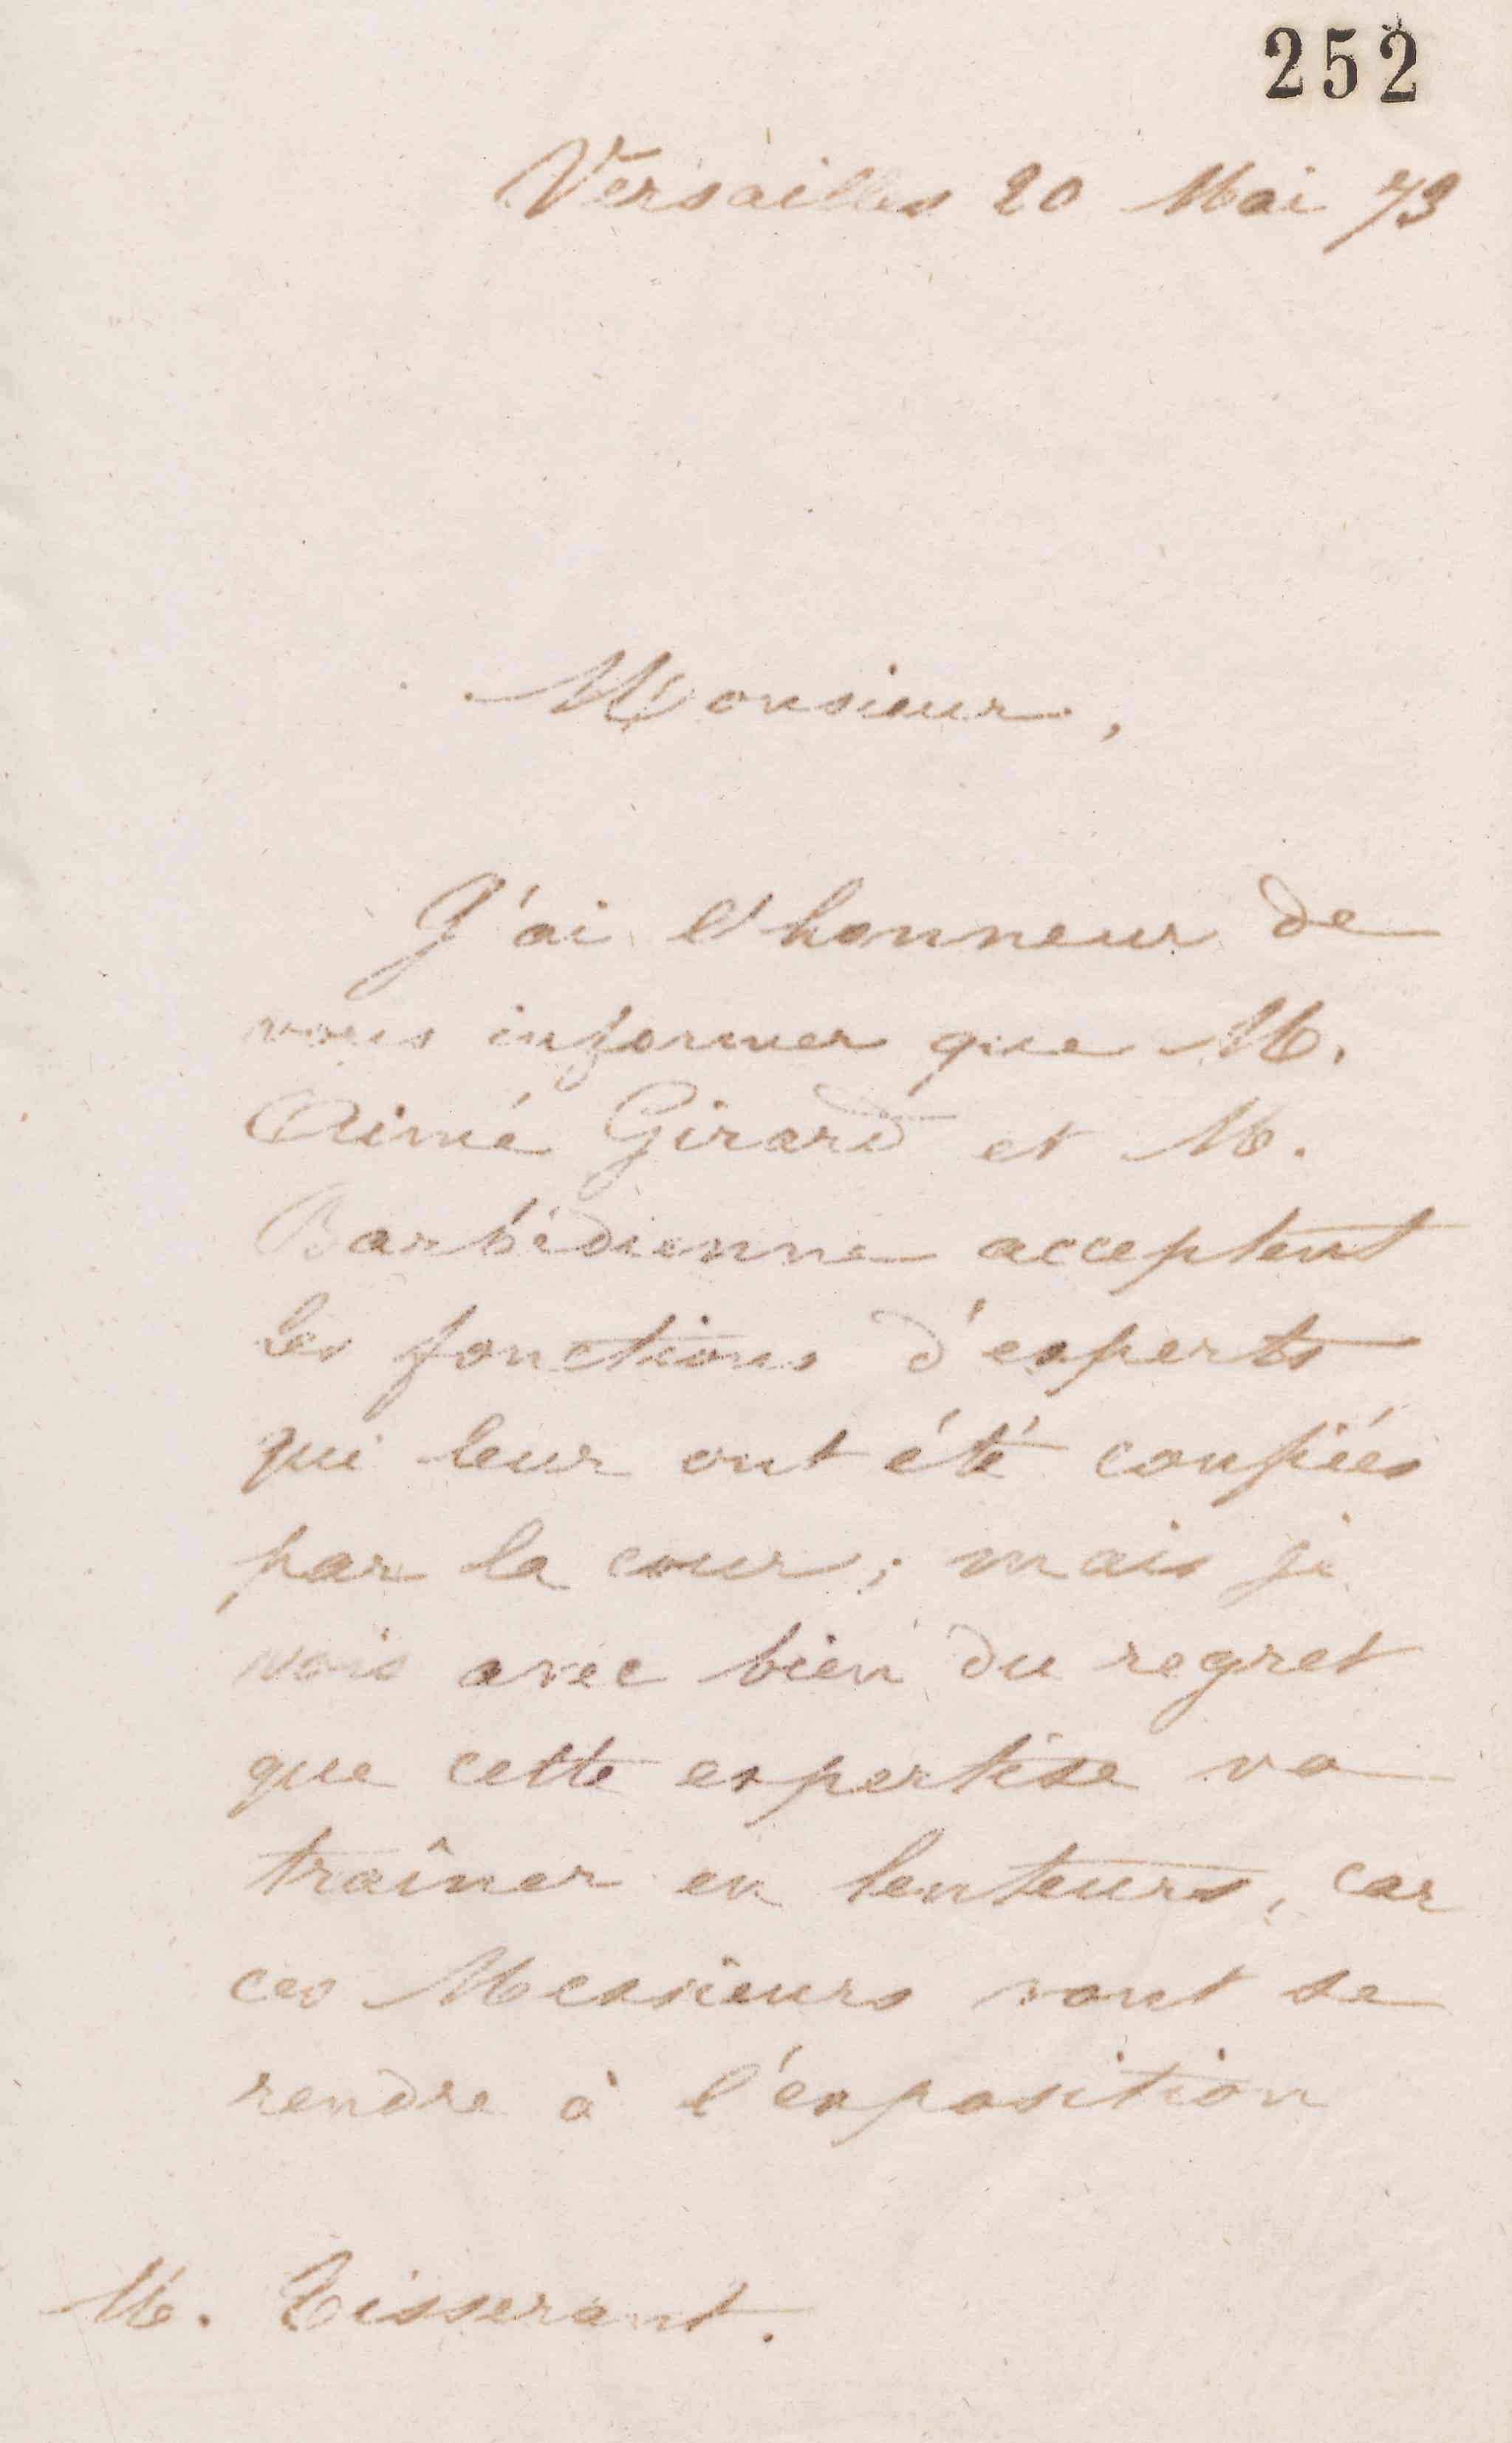 252
Versailles 20 Mai 73
Monsieur,
J'ai l'honneur de
vous informer que M.
Aimé Girard et M.
Barbédienne acceptent
les fonctions d'experts
qui leur ont été confiées
par la cour; mais je
vois avec bien du regret
que cette expertise va
traîner en lenteurs, car
ces Messieurs vont se
rendre à l'exposition
M. Tisserant.